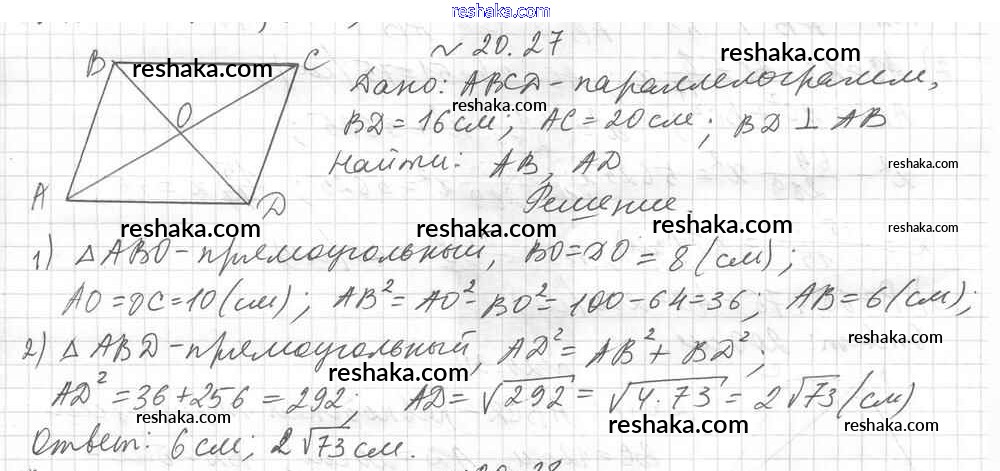 reshaka.com
~ 20.27
B C reshaka.com reshaka.com
Дано: ABCD - параллелограмм,
O reshaka.com
BD = 16 см; AC = 20 см; BD ⊥ AB
Найти: AB, AD reshaka.com
A D Решение.
reshaka.com reshaka.com reshaka.com reshaka.com
1) △ ABO - прямоугольный, BO = DO = 8 (см);
AO = OC = 10 (см); AB² = AO² - BO² = 100 - 64 = 36; AB = 6 (см);
reshaka.com
2) △ ABD - прямоугольный, AD² = AB² + BD²;
reshaka.com
AD² = 36 + 256 = 292; AD = √292 = √4·73 = 2√73 (см)
reshaka.com reshaka.com reshaka.com
Ответ: 6 см; 2√73 см.